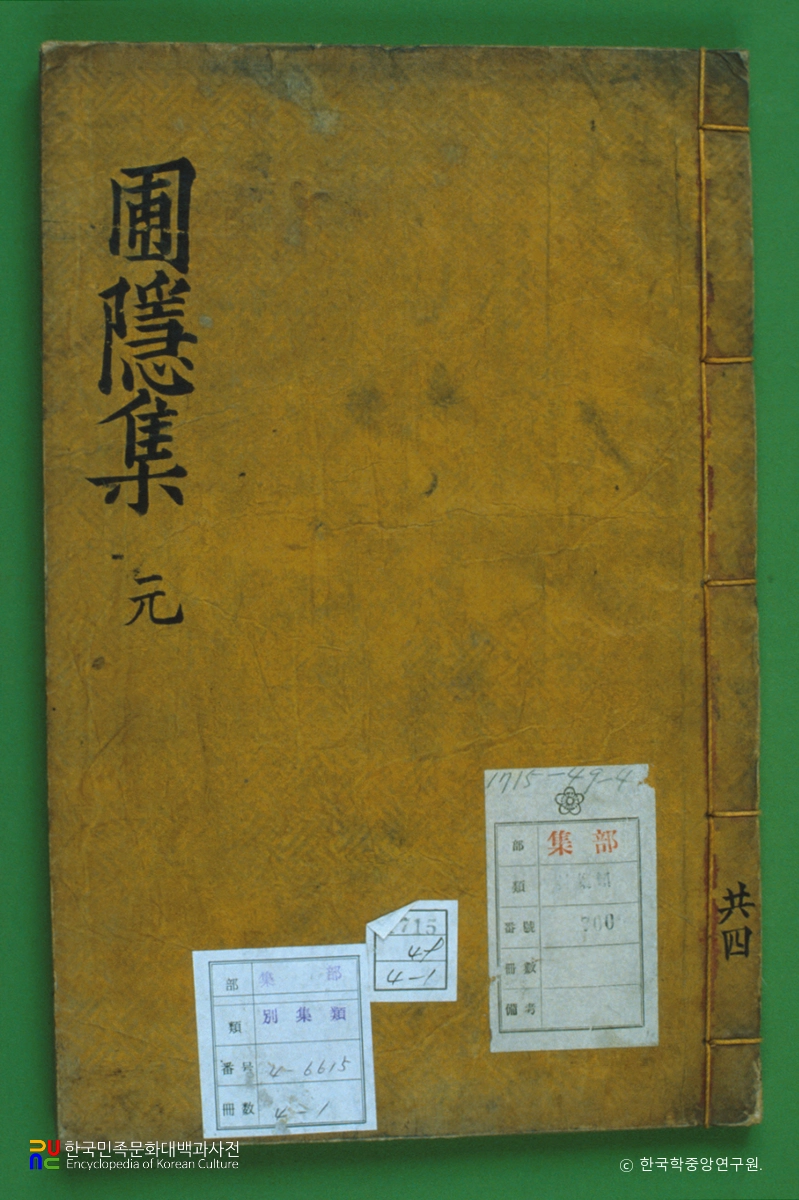 圃隱集
元
共四
1715-49-4
部 集部
類
番號 700
冊數
備考
1715
4-1
部 集部
類 別集類
番号 4-6615
冊数 4-1
한국민족문화대백과사전
Encyclopedia of Korean Culture
© 한국학중앙연구원.